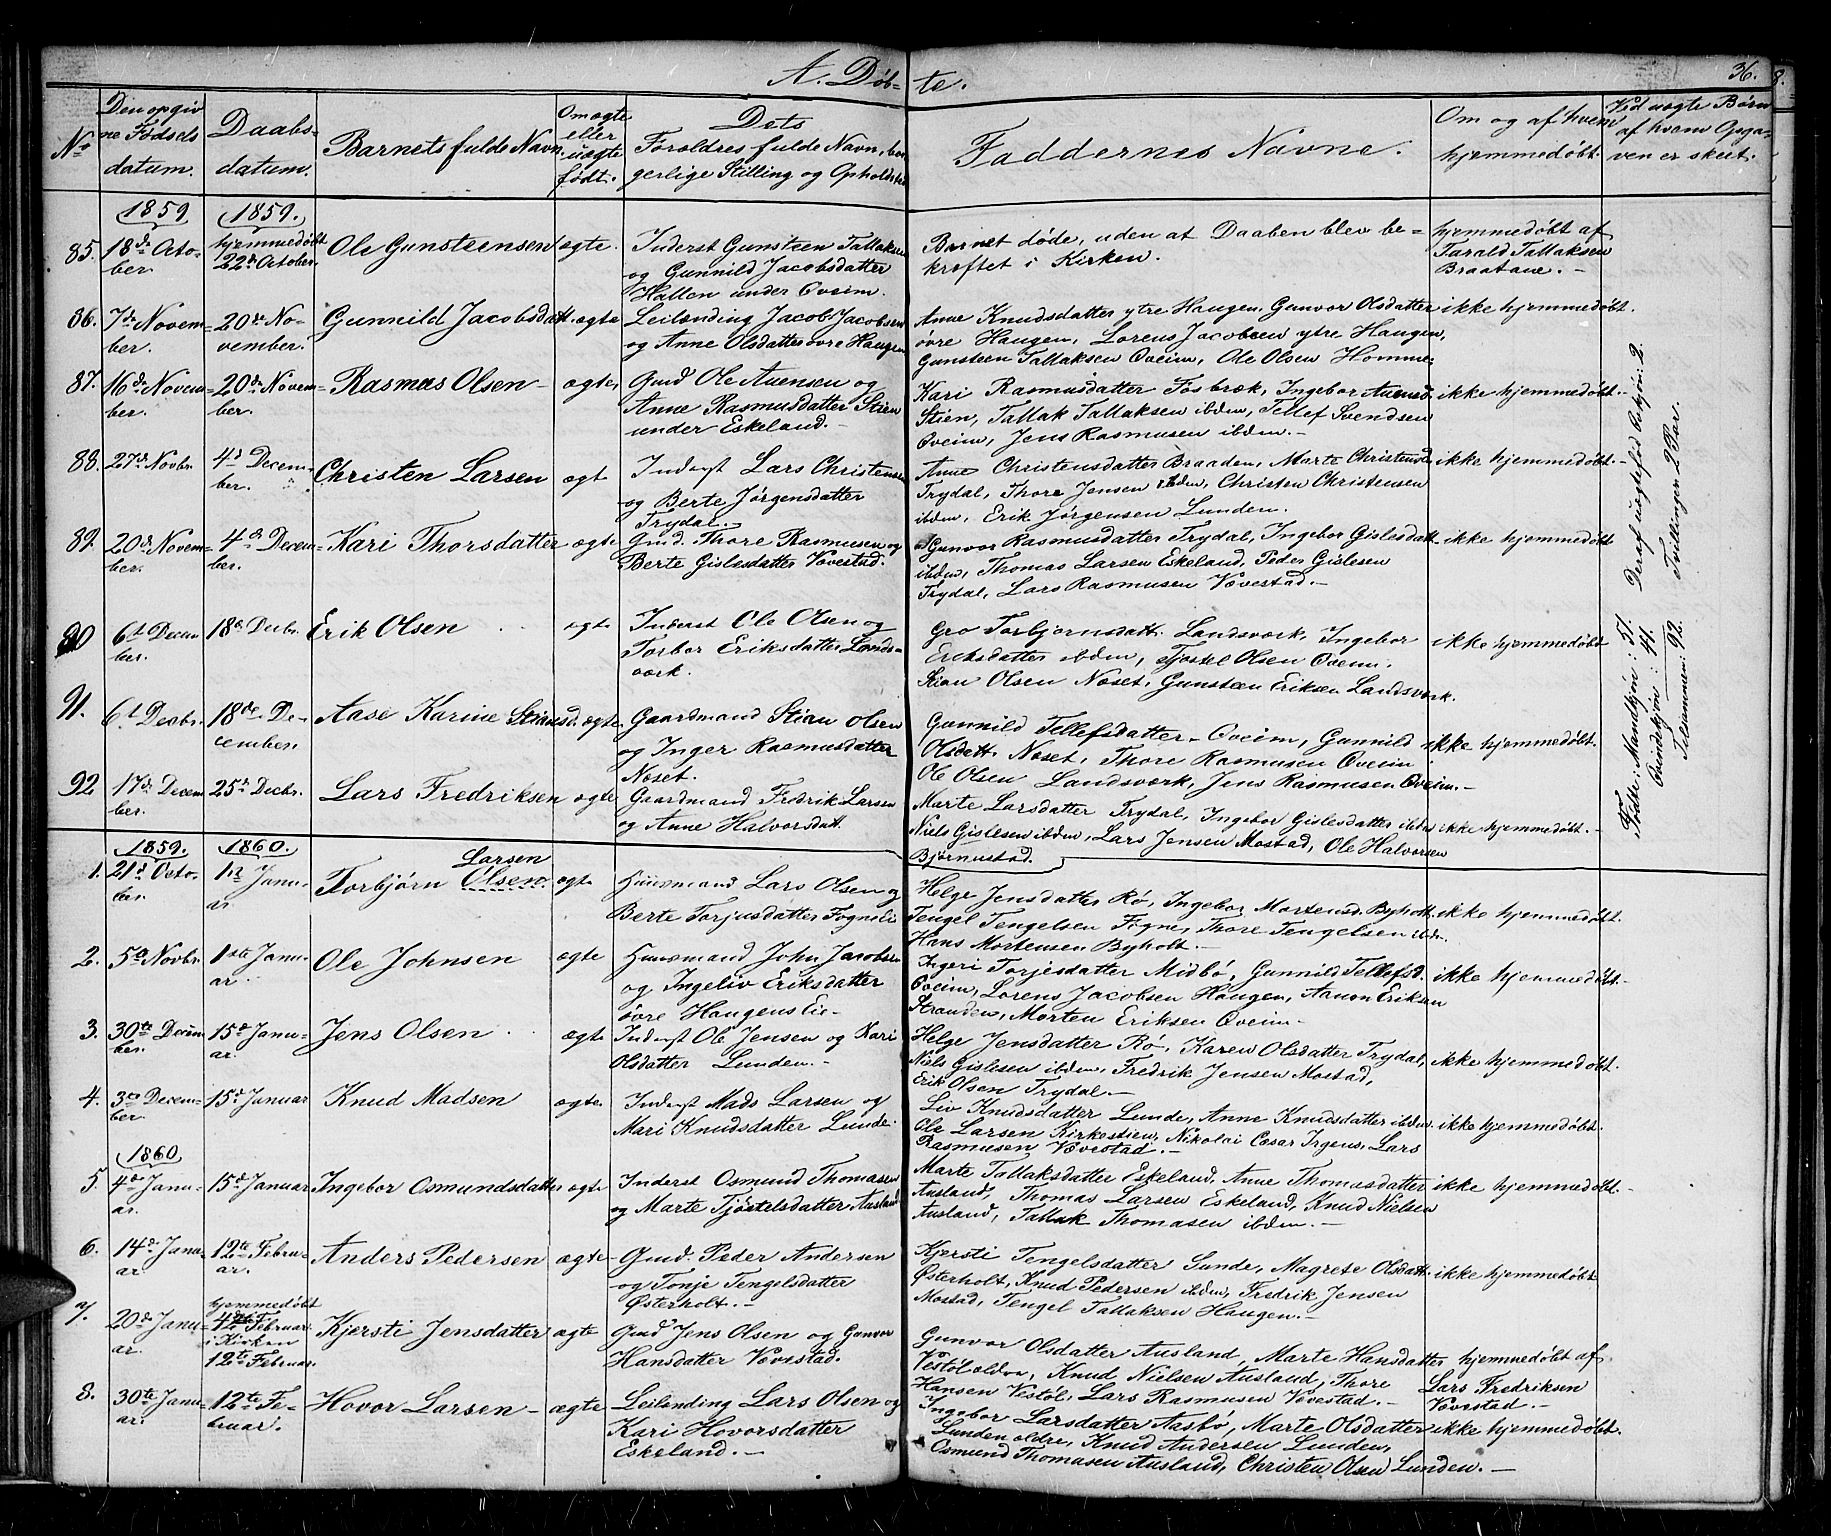 A. Døb- te. 36.
No Den opgiv ne Fødsels datum. Daabs- dattum. Barnets fulde Navn. Om ægte eller uægte født. Dets Foreldres fulde Navn, bor gerlige Stilling og Opholdsted Faddernes Navne. Om og af hvem hjemmedøbt. Ved uægte Børn af hvem Opga- ven er skeet.
1859 1859.
85. 18de Octo- ber. hjemmedøbt 22de October. Ole Gunsteensen ægte. Inderst Gunsteen Tallaksen
og Gunnild Jacobsdatter
Hallen under Oveim.
Barnet døde, uden at Daaben blev be-
kræftet i Kirken.
hjemmedøbt af
Tarald Tallaksen
Braatane. -
86. 7de Novem- ber. 20de No- vember. Gunnild Jacobsdatt. ægte Leilending Jacob Jacobsen
og Anne Olsdatter øvre Haugen
Anne Knudsdatter ytre Haugen, Gunvor Olsdatter
øvre Haugen, Lorens Jacobsen ytre Haugen,
Gunsteen Tallaksen Oveim, Ole Olsen Homme.
ikke hjemmedøbt.
87. 16de Novem- ber. 20de Novem- ber. Rasmus Olsen - ægte, Gmd Ole Auensen og
Anne Rasmusdatter Stien
under Eskeland. -
Kari Rasmusdatter Fosbræk, Ingebor Auensd.
Stien, Tallak Tallaksen ibdm, Tellef Svendsen
Oveim, Jens Rasmusen ibdm. -
ikke hjemmedøbt. -
88. 27de Novbr. 4de Decem- ber. Christen Larsen ægt Inderst Lars Christensen
og Berte Jørgensdatter
Trydal. -
Anne Christensdatter Braaden, Marte Christensd.
Trydal, Thore Jensen ibdm, Christen Christensen
ibdm, Erik Jørgensen Lunden. -
ikke hjemmedøbt. -
89. 20de Novem- ber. 4de Decem- ber. Kari Thorsdatter ægte Gmd. Thore Rasmusen og
Berte Gislesdatter Vovestad.
Gunvor Rasmusdatter Trydal, Ingebor Gislesdatt.
ibdm, Thomas Larsen Eskeland, Peder Gislesen
Trydal, Lars Rasmusen Vovestad. -
ikke hjemmedøbt
90 6te Decem ber. 18de Decbr. Erik Olsen ægte Inderst Ole Olsen og
Torbor Eriksdatter Lands-
værk.
Gro Torbjornsdatt. Landsværk, Ingebor
Eriksdatter ibdm, Tjøstel Olsen Oveim.
Stian Olsen Næset, Gunsteen Eriksen Landsværk.
ikke hjemmedøbt
91. 6te Decbr. 18de De- cember. Aase Karine Stiansd. ægte Gaardmand Stian Olsen
og Inger Rasmusdatter
Næset.
Gunnild Tellefsdatter Oveim, Gunnild
Olsdatt. Næset, Thore Rasmusen Oveim
Ole Olsen Landsværk, Jens Rasmusen Oveim. -
ikke hjemmedøbt.
92 17de Decem ber. 25de Decbr. Lars Fredriksen ægte Gaardmand Fredrik Larsen
og Anne Halvorsdatt.
Marte Larsdatter Trydal, Ingebor Gislesdatter ibdm
Niels Gislesen ibdm, Lars Jensen Mostad, Ole Halvorsen
Bjørnustad.
ikke hjemmedøbt. -
Fødte: Mandkjøn: 51. Deraf uægtefød. Mkjøn: 2.
Qvindekjøn: 41. Tvillinger: 2 Par.
Tilsammen: 92.
1859. 1860.
1. 21de Octo- ber. 1ste Janu- ar. Torbjørn Olsen Larsen ægte Huusmand Lars Olsen og
Berte Torjusdatter Fogneli
Helge Jensdatter Rø, Ingebor Mortensd. Byholt
Tengel Tengelsen Fogne, Thore Tengelsen ibdm.
Hans Mortensen Byholt. -
ikke hjemmedøbt.
2. 5te Novbr. 1ste Janu- ar. Ole Johnsen ægte Huusmand John Jacobsen
og Ingeliv Eriksdatter
øvre Haugens Eie -
Ingeri Torjesdatter Midbø, Gunnild Tellefsd.
Oveim, Lorens Jacobsen Haugen, Aanon Eriksen
Stranden, Morten Eriksen Oveim -
ikke hjemmedøbt. -
3. 30te Decem ber. 15de Janu- ar. Jens Olsen ægte Inderst Ole Jensen og Kari
Olsdatter Lunden. -
Helge Jensdatter Rø, Karen Olsdatter Trydal,
Niels Gislesen ibdm, Fredrik Jensen Mostad,
Erik Olsen Trydal. -
ikke hjemmedøbt.
4. 3die Decem- ber. 15de Januar Knud Madsen ægte Inderst Mads Larsen og
Mari Knudsdatter Lunde.
Liv Knudsdatter Lunde, Anne Knudsdatter ibdm
Ole Larsen Kirkestien, Nikolai Cæsar Irgens, Lars
Rasmusen Vovestad. -
ikke hjemmedøbt.
1860
5. 4de Janu- ar. 15de Januar Ingebor Osmundsdatter ægte Inderst Osmund Thomasen
og Marte Tjøstelsdatter Ausland
Marte Tallaksdatter Eskeland, Anne Thomasdatter
Ausland, Thomas Larsen Eskeland, Knud Nielsen
Ausland, Tallak Thomasen ibdm. -
ikke hjemmedøbt. -
6. 14de Janu- ar 12te Februar. Anders Pedersen ægte Gmd. Peder Andersen
og Tonje Tengelsdatter
Østerholt. -
Kjersti Tengelsdatter Lunde, Magrete Olsdatt.
Østerholt, Knud Pedersen ibdm, Fredrik Jensen
Mostad, Tengel Tallaksen Haugen. -
ikke hjemmedøbt
7. 20de Janu- ar. hjemmedøbt 4de Februar. i Kirken 12te Februar. Kjersti Jensdatter ægte Gmd Jens Olsen og Gunvor
Hansdatter Vovestad.
Gunvor Olsdatter Ausland, Marte Hansdatter
Vestøl ældre, Knud Nielsen Ausland, Thore
Hansen Vestøl, Lars Rasmusen Vovestad. -
hjemmedøbt af
Lars Fredriksen
Vovestad. -
8. 30te Janu- ari 12te Fe- bruar. Hovor Larsen - ægte Leilending Lars Olsen og
Kari Hovorsdatter
Eskeland. -
Ingebor Larsdatter Aasbø, Marte Olsdatter
Lunden ældre, Knud Andersen Lunden,
Osmund Thomasen Ausland, Christen Olsen Lunden. -
ikke hjemmedøbt.